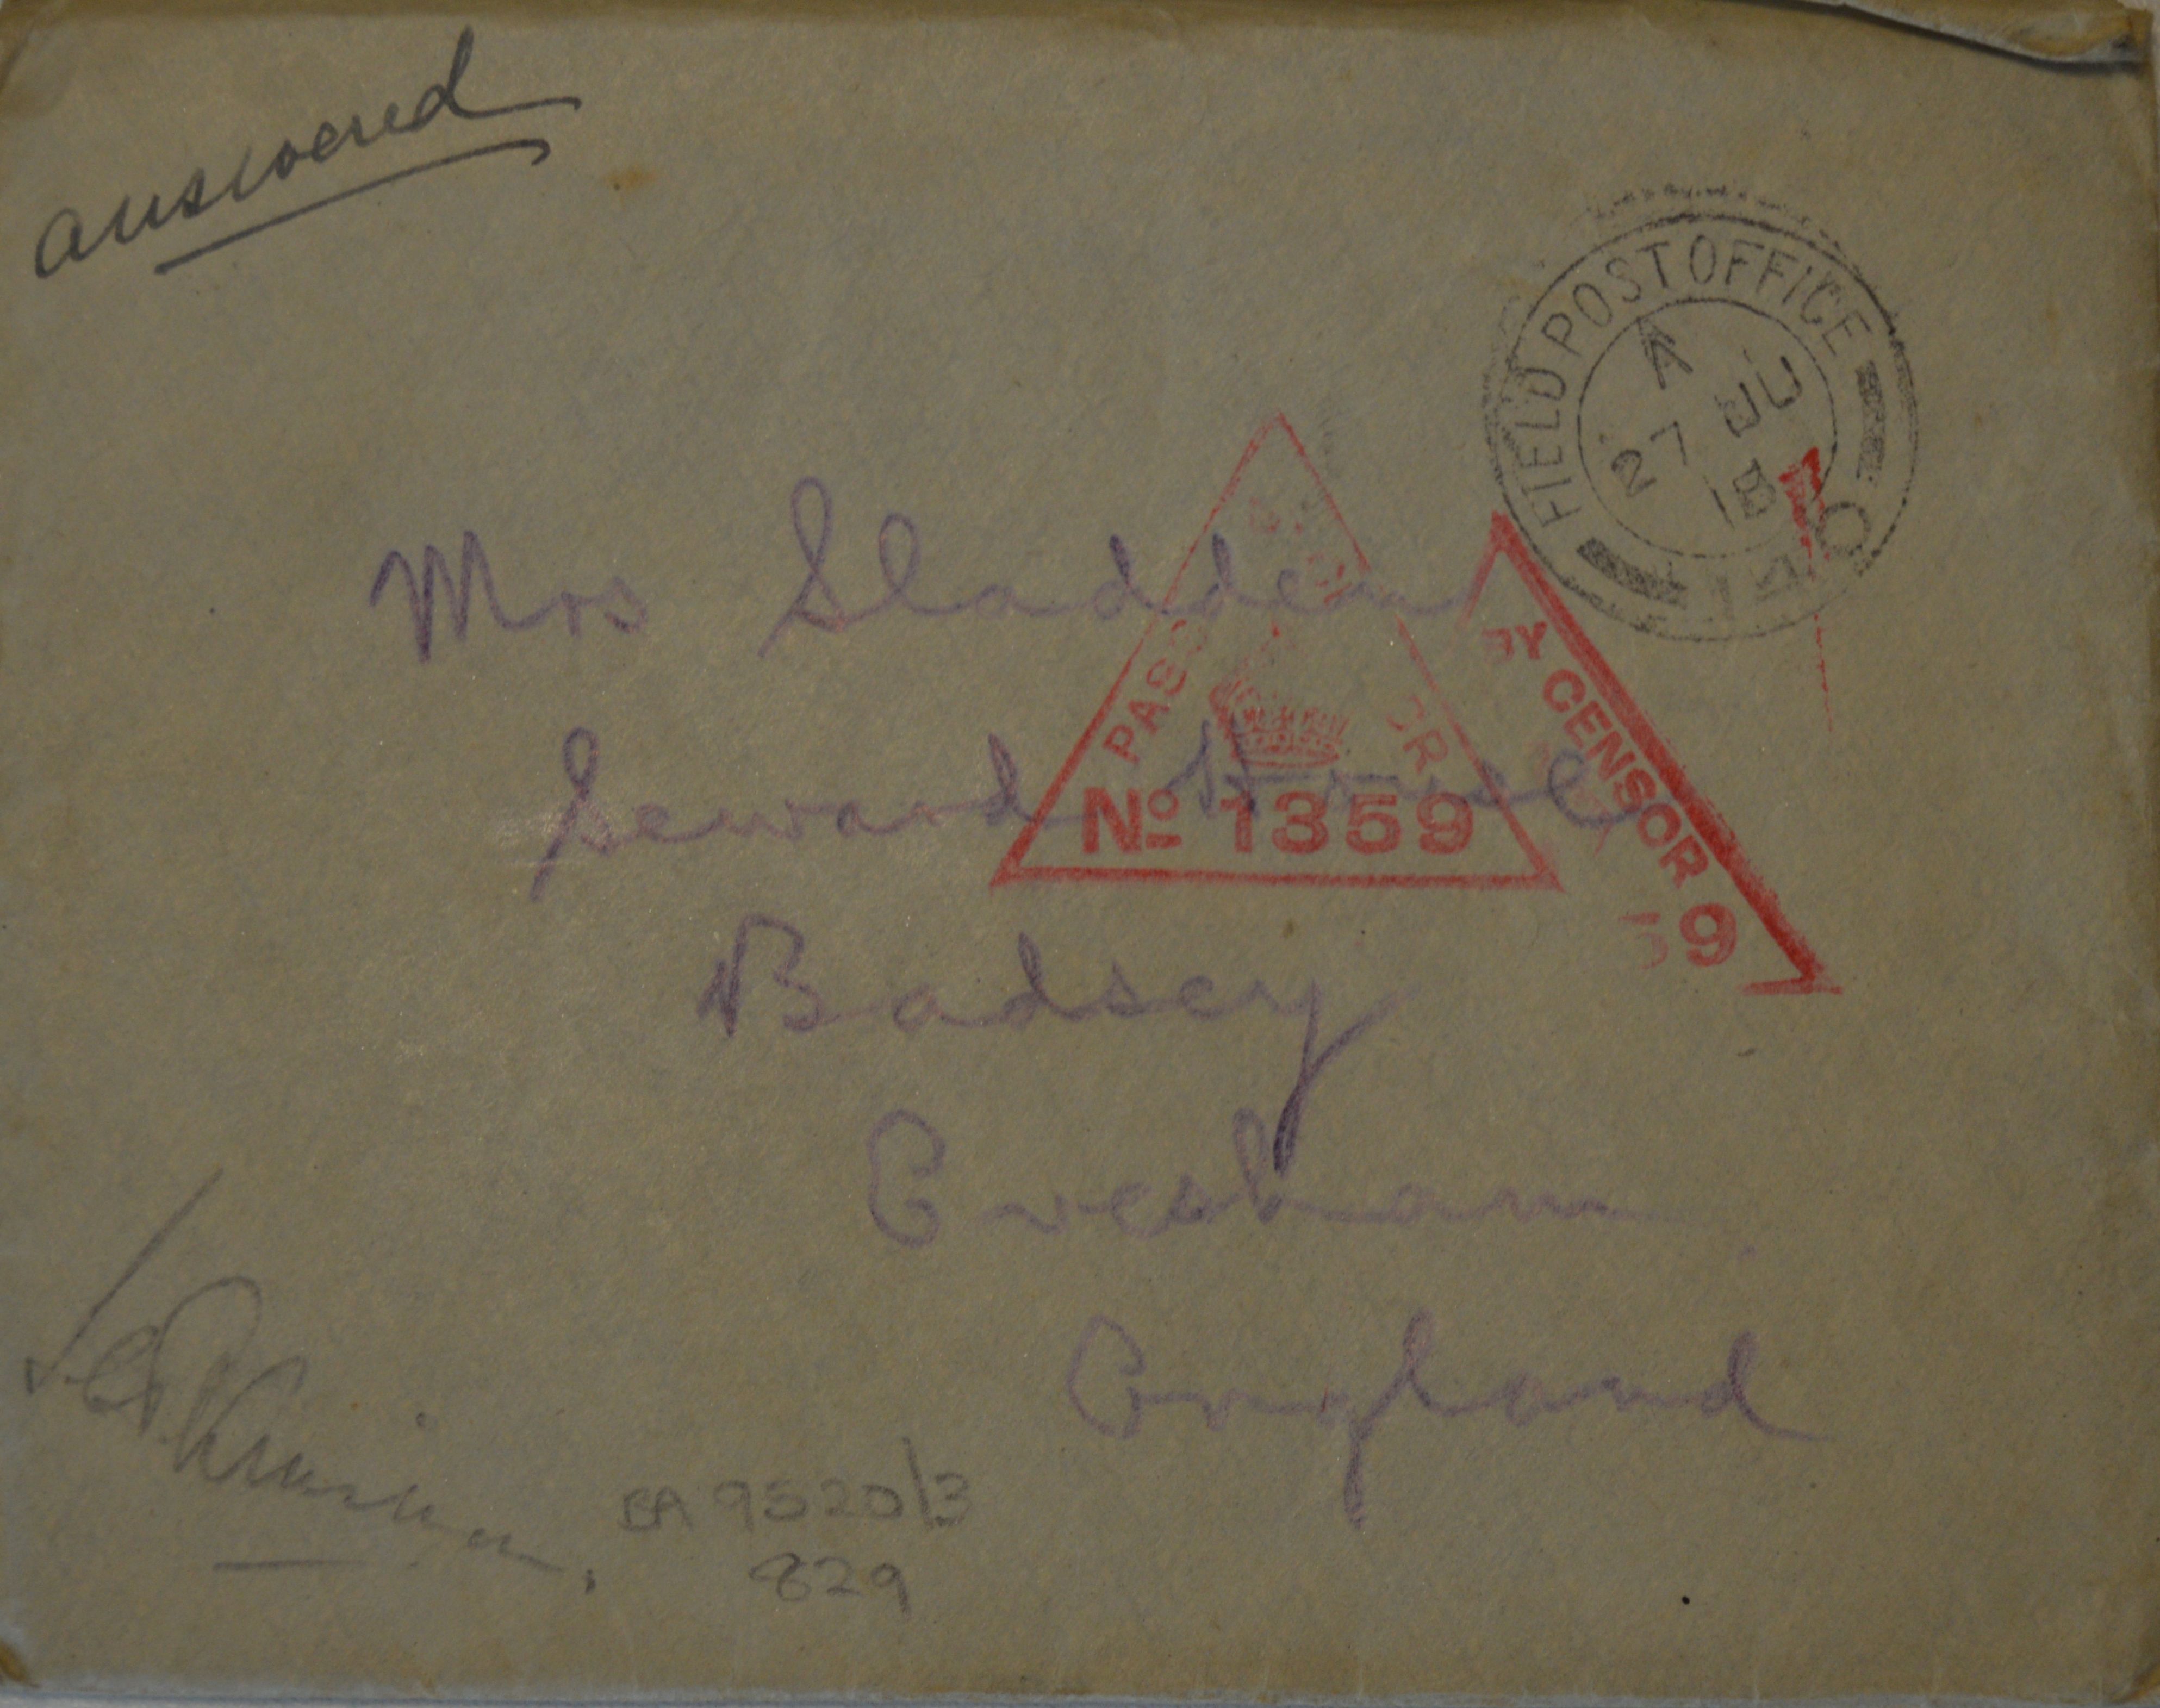 answered
FIELD POST OFFICE
A
27 JU
18
140
Mrs Sladden
PASSED BY CENSOR
No 1359
BY CENSOR
59
Seward House
Badsey
Evesham
England
EA 9520/3
829